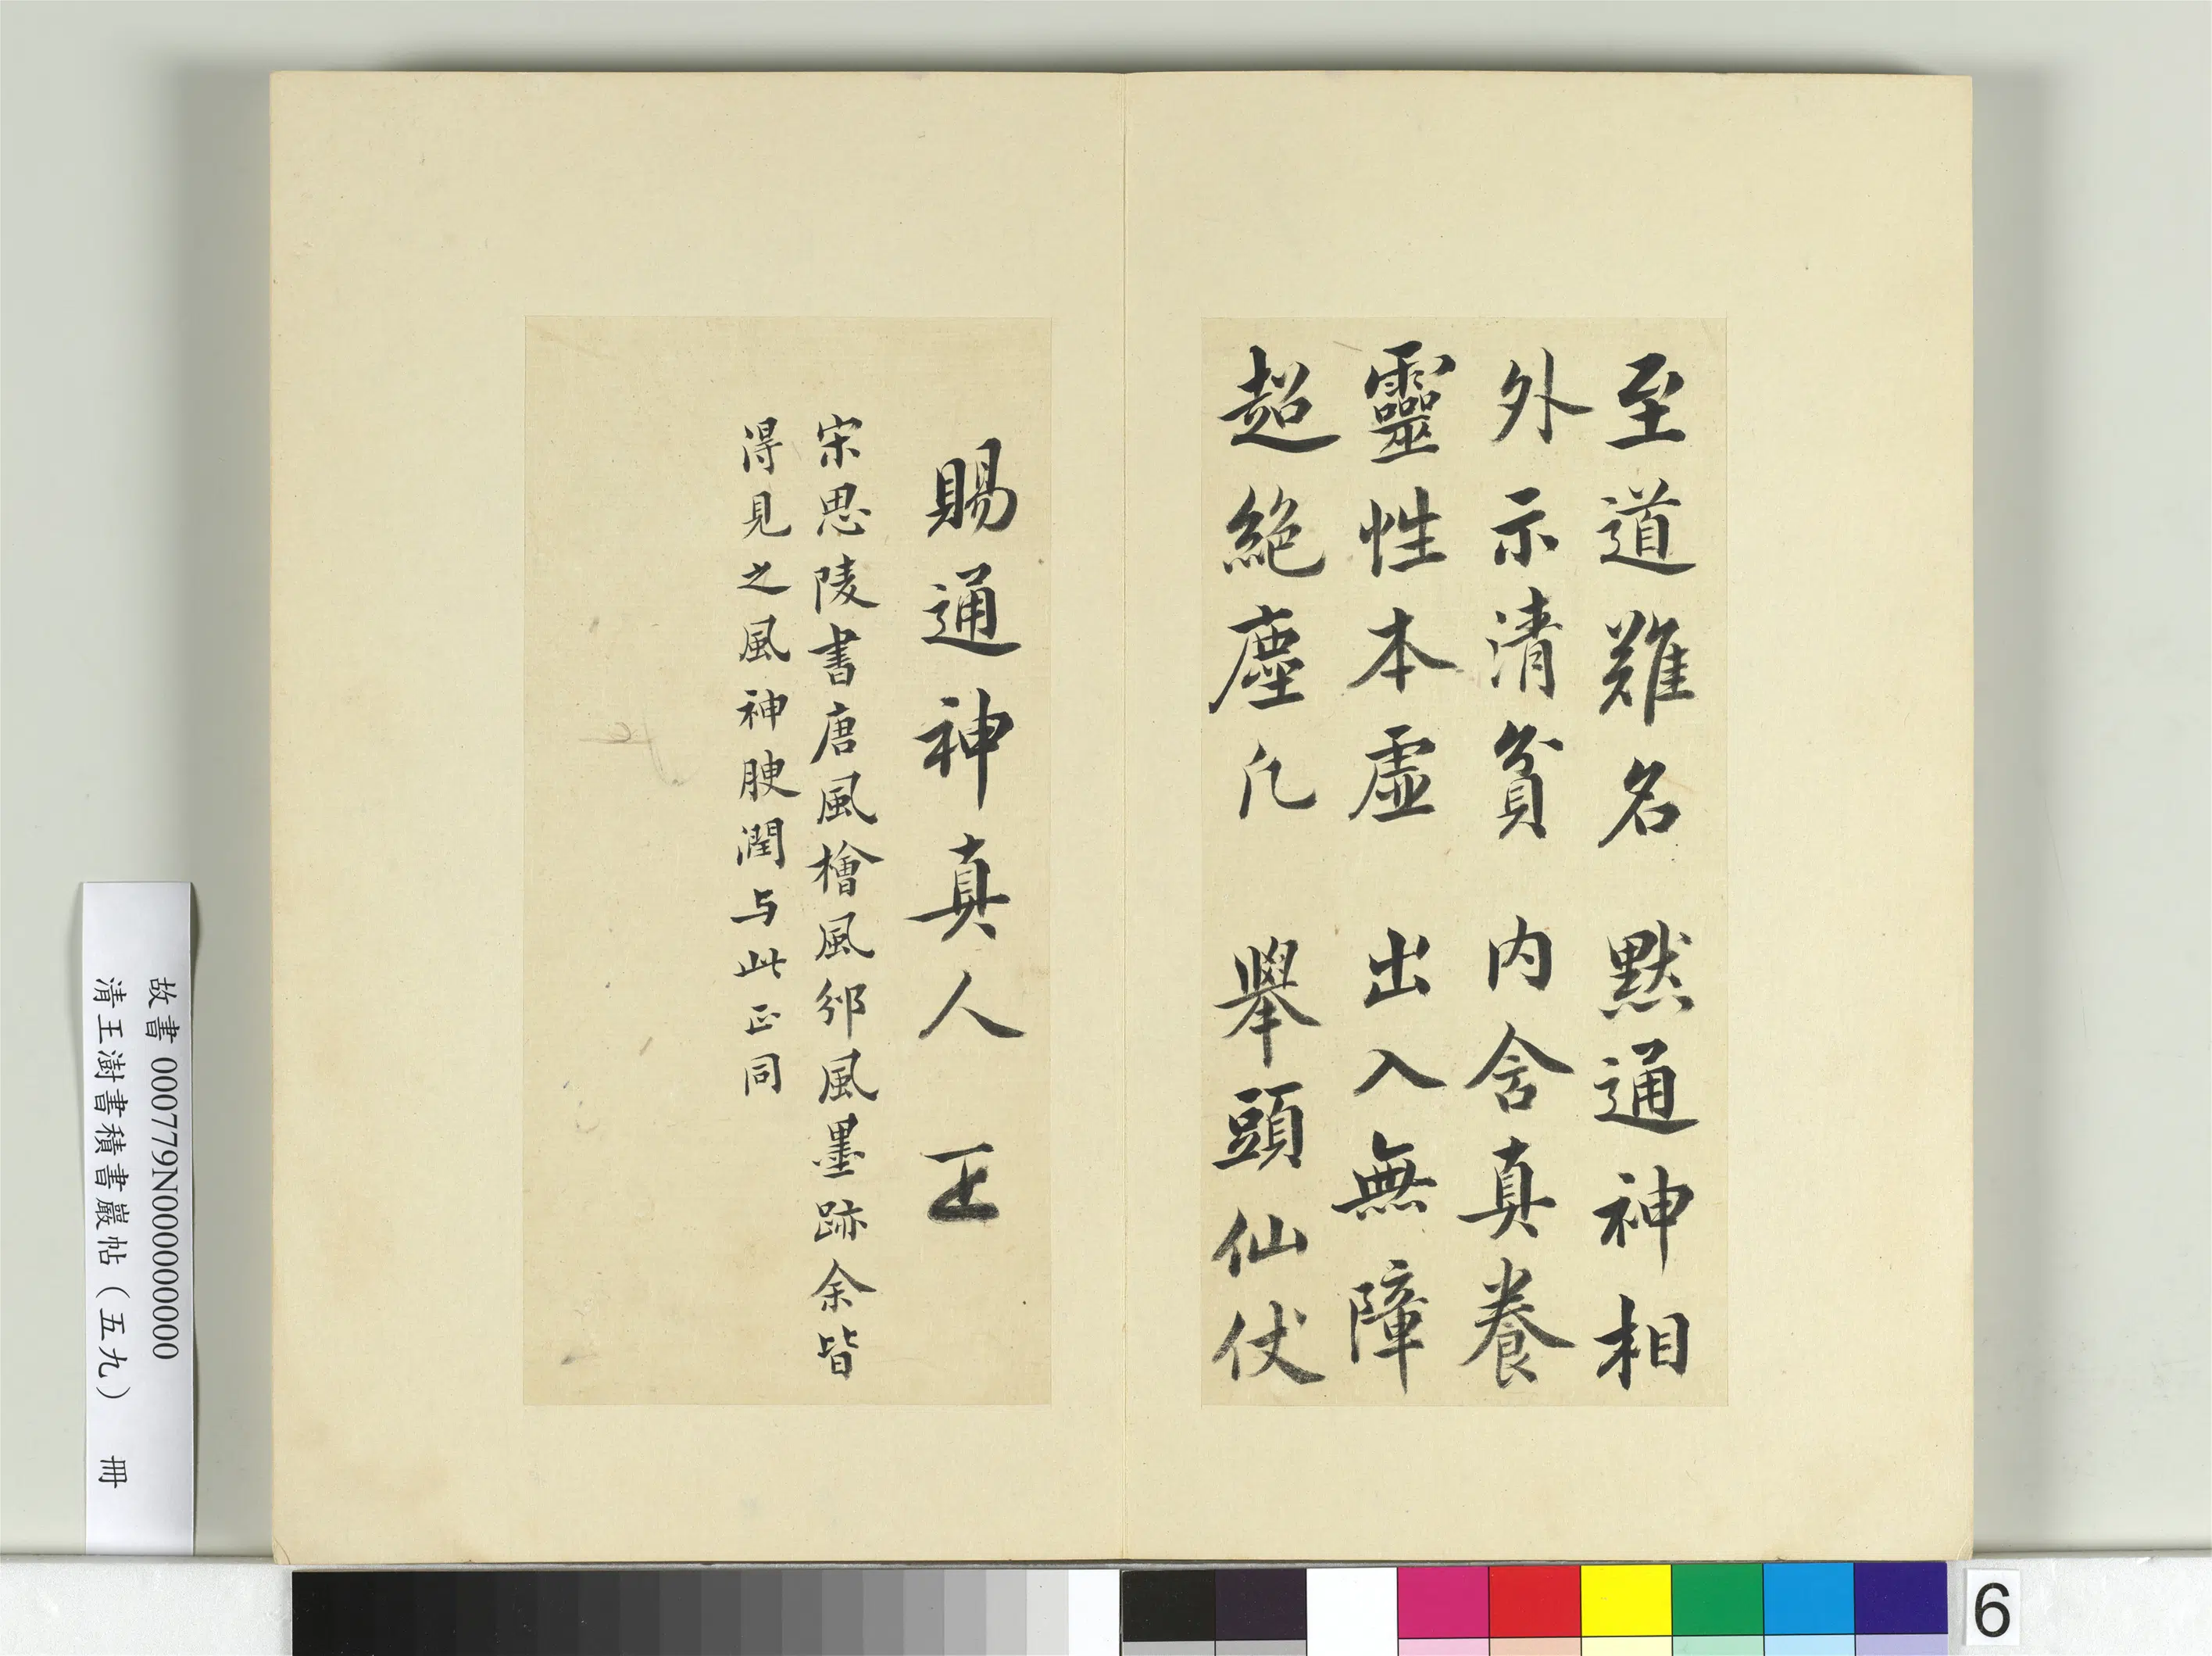 至道難名　默通神相
外示清貧　內含真養
靈性本虛　出入無障
超絕塵凡　舉頭仙仗
賜通神真人　王
宋思陵書唐風檜風邠風墨跡余皆
得見之風神腴潤与此正同
故書 000779N000000000
清王澍書積書巖帖（五九）　冊
6